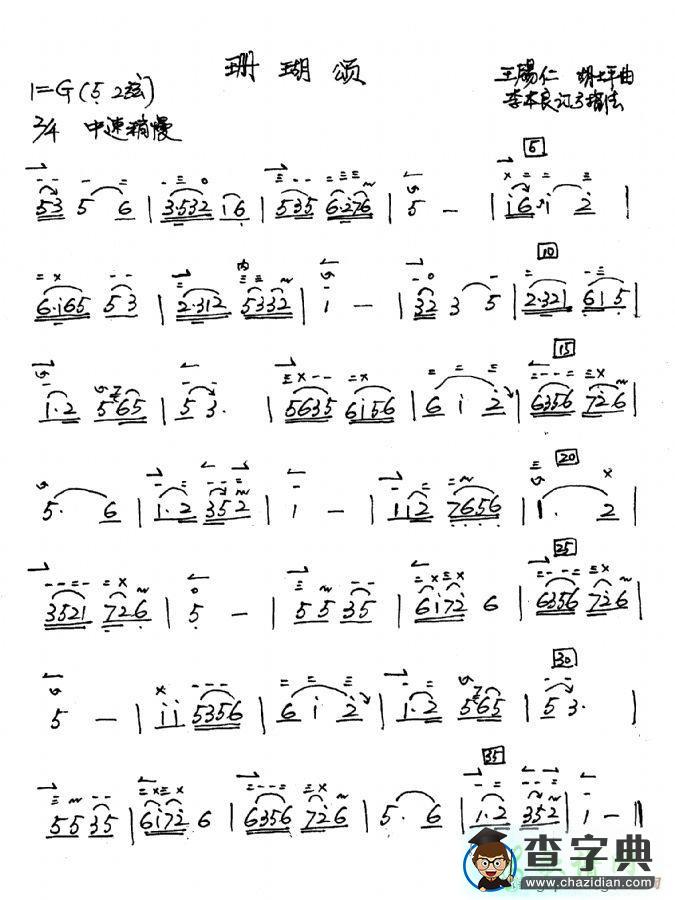 珊瑚颂
1=G(5 2弦)
王锡仁 胡士平曲
李本良订弓指法
2/4 中速稍慢
5
53 5 6 | 3·532 i6 | 535 6·276 | 5 - | i6·i 2 |
10
6·i65 53 | 2·312 5332 | 1 - | 32 3 5 | 2·321 615 |
15
1·2 565 | 5 3· | 5635 6156 | 6 i 2 | 6356 726 |
20
5· 6 | 1·2 352 | 1 - | 112 7656 | 1· 2 |
25
3521 726 | 5 - | 55 35 | 6172 6 | 6356 726 |
30
5 - | ii 5356 | 6 i 2 | 1·2 565 | 5 3· |
35
55 35 | 6172 6 | 6356 726 | 5· 6 | 1·2 352 | 1 - ||
查字典
www.chazidian.com